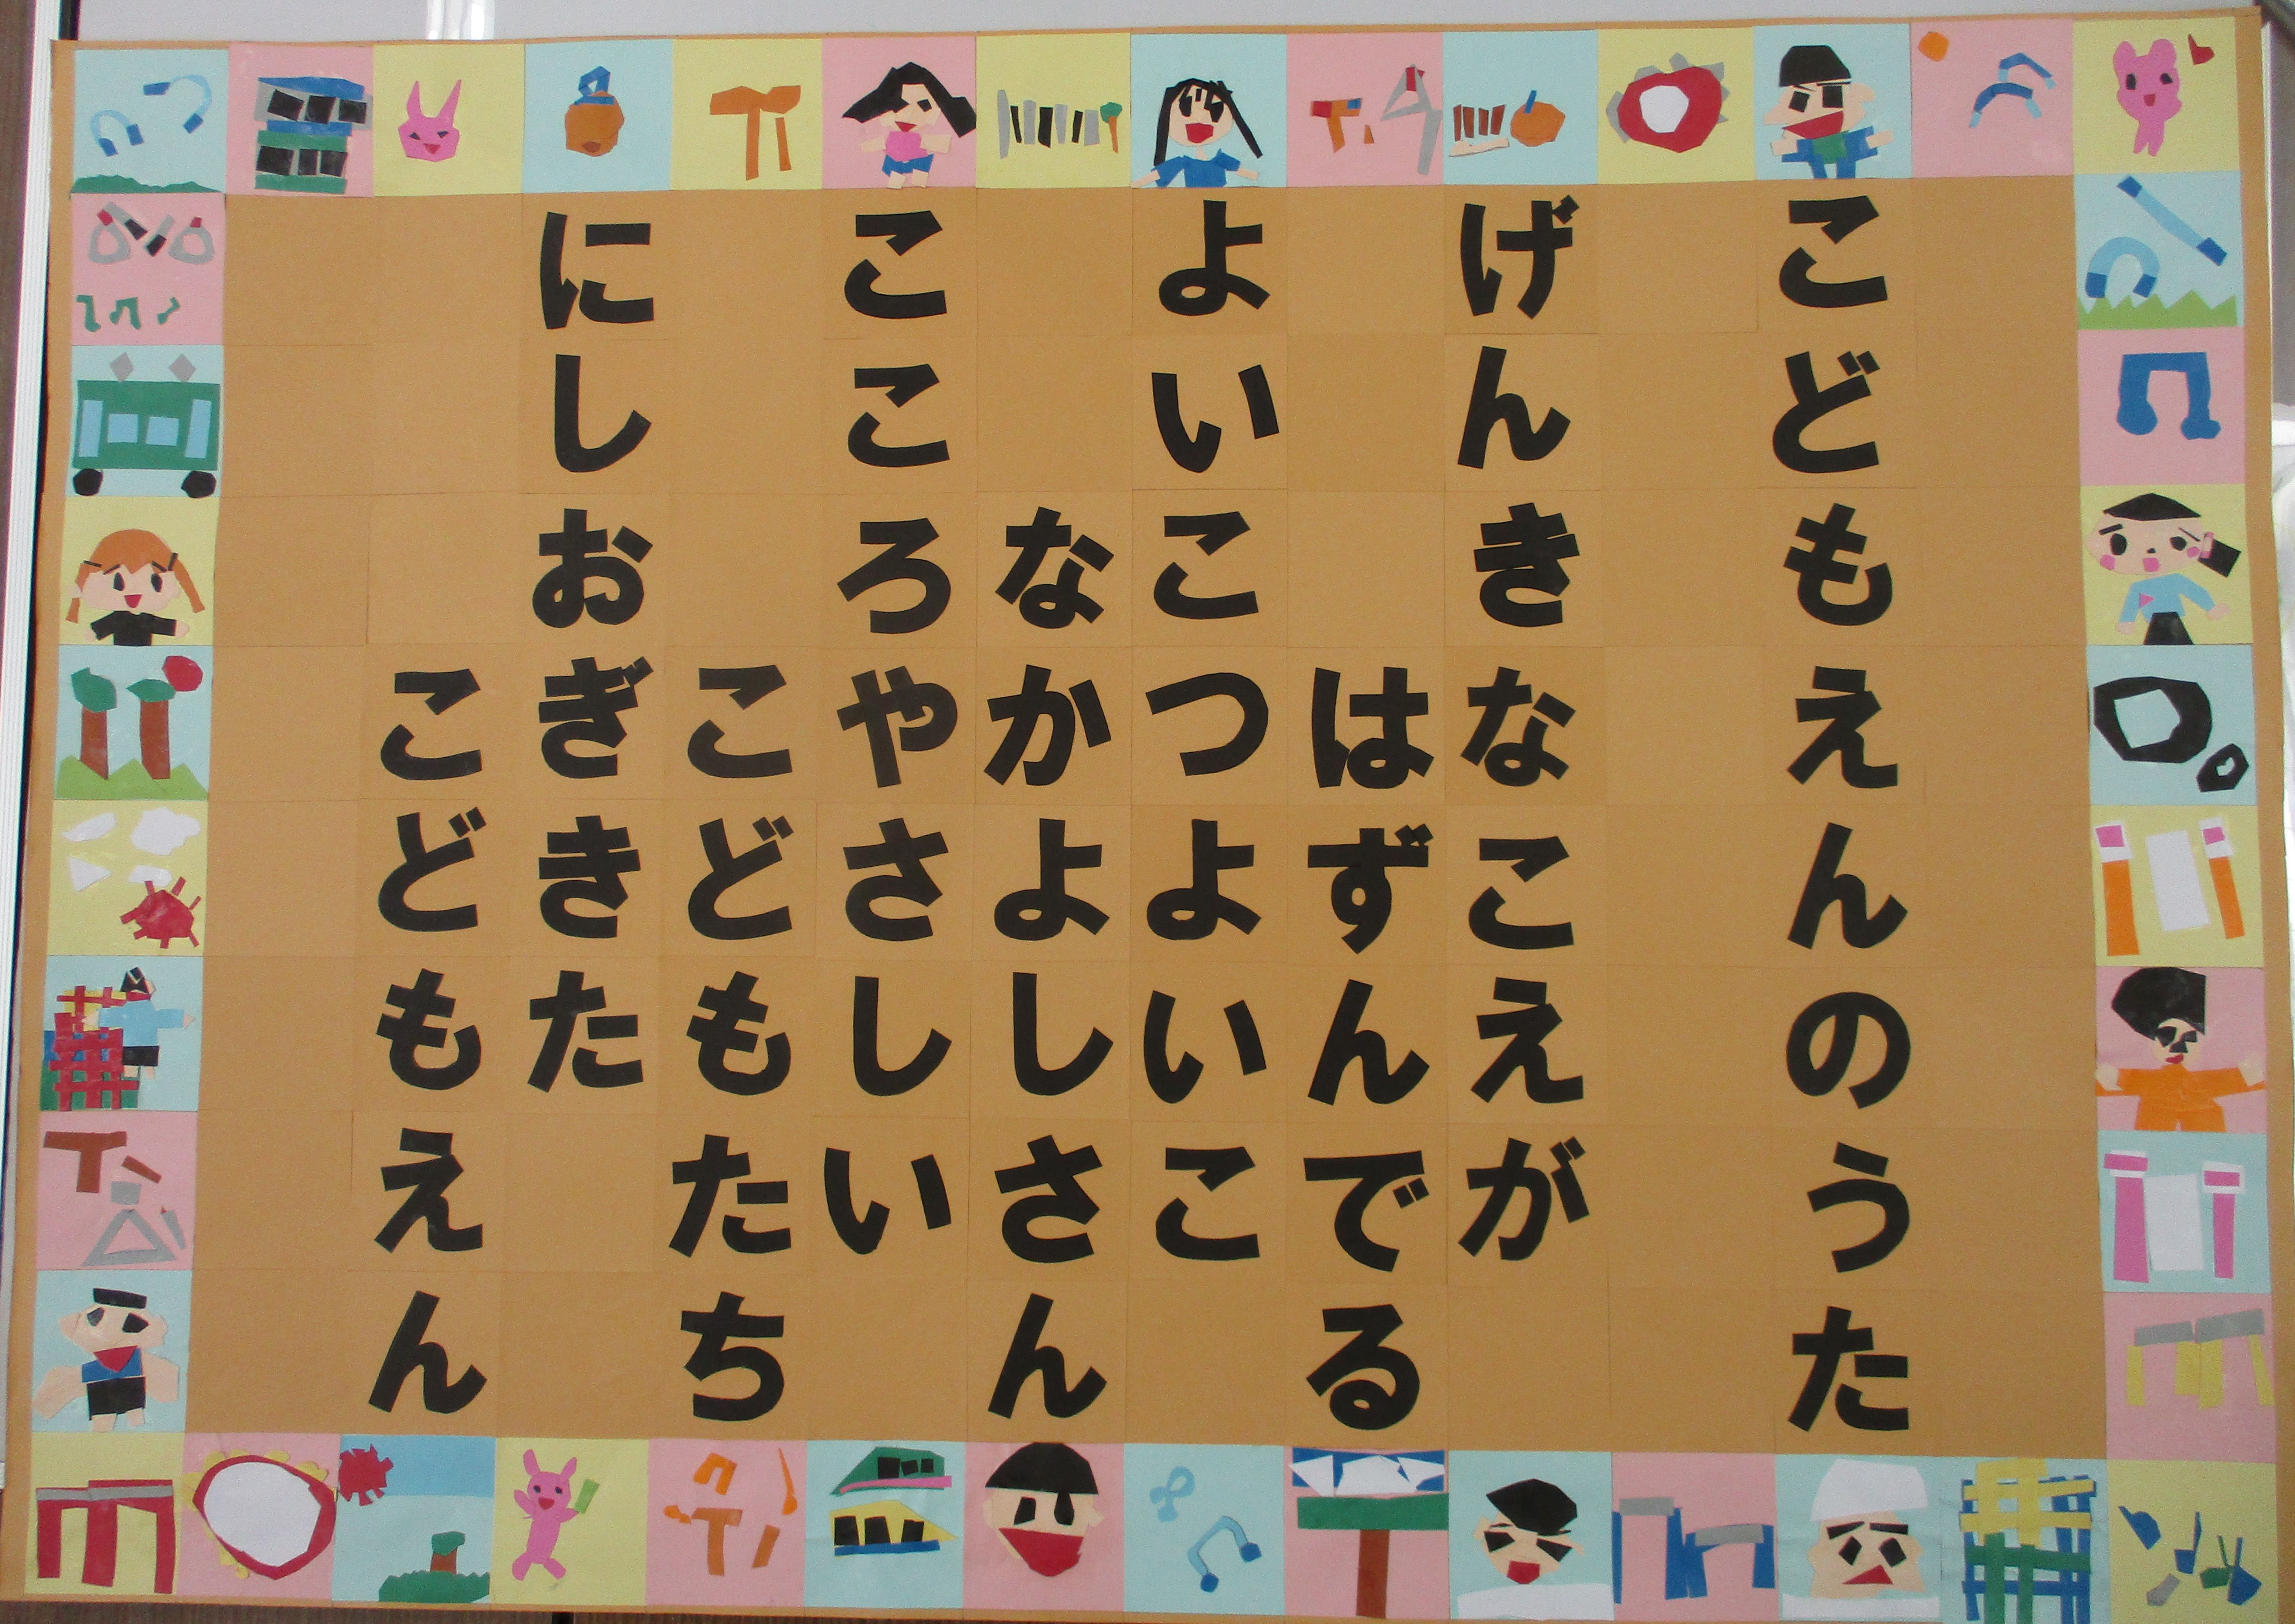 こどもえんのうた
げんきなこえが
はずんでる
よいこつよいこ
なかよしさん
こころやさしい
こどもたち
にしおぎきた
こどもえん